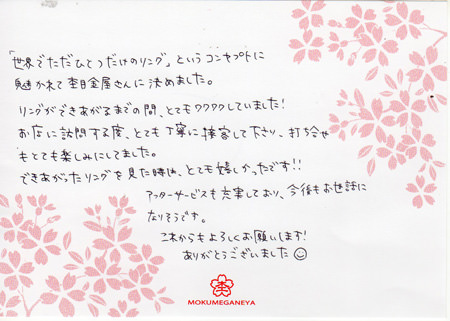 「世界でただひとつだけのリング」というコンセプトに
魅かれて杢目金屋さんに決めました。
リングができあがるまでの間、とてもワクワクしていました!
お店に訪問する度、とても丁寧に接客して下さり、打ち合せ
もとても楽しみにしてました。
できあがったリングを見た時は、とても嬉しかったです!!
アフターサービスも充実しており、今後もお世話に
なりそうです。
これからもよろしくお願いします!
ありがとうございました☺
杢
MOKUMEGANEYA